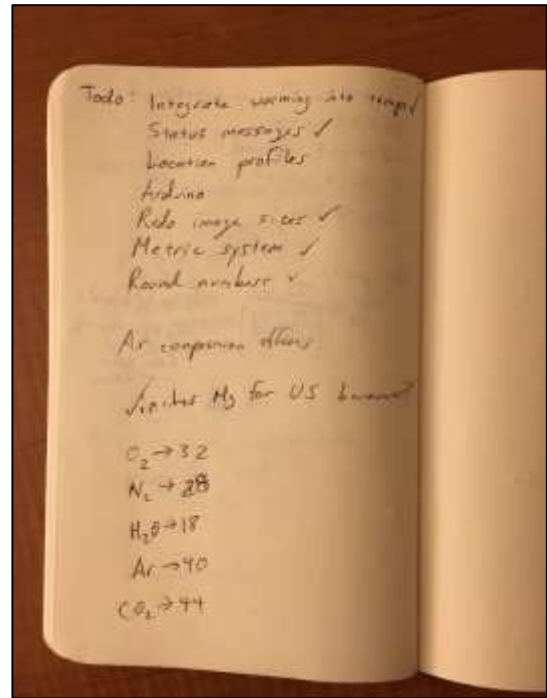 Todo: Integrate warming into temps ✓
Status messages ✓
Location profiles
Arduino
Redo image sizes ✓
Metric system ✓
Round numbers ✓
Ar companion
✓ inches Hg for US
O₂ → 32
N₂ → 28
H₂O → 18
Ar → 40
CO₂ → 44